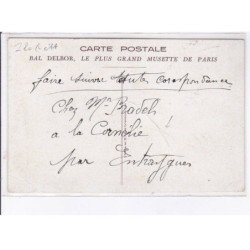 CARTE POSTALE
BAL DELBOR, LE PLUS GRAND MUSETTE DE PARIS
faire suivre toutes correspondance
Chez Mr
à la
par Entraygues